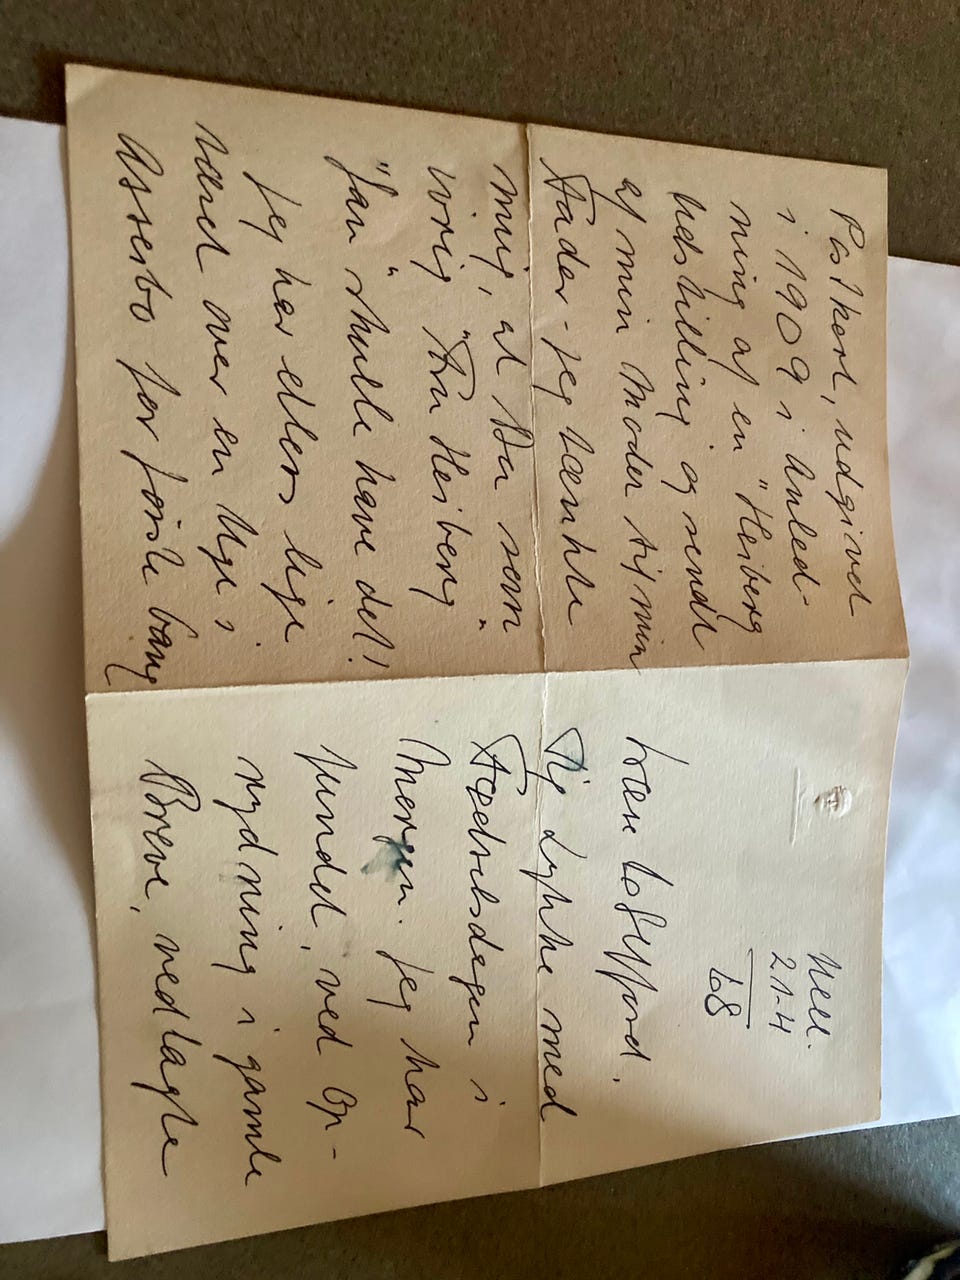 Hell.
21-4
68
Kære
Til Lykke med
Fødselsdagen i
Morgen. Jeg har
fundet, ved Op-
rydning i gamle
Breve, vedlagte
Postkort, udgivet
i 1909 i Anled-
ning af en "Heiberg
Udstilling og sendt
af min Moder til min
Fader - jeg tænkte
mig, at Du som
ivrig "Fru Heiberg"
"Fan" skulle have det!
Jeg har ellers lige
været over en Uge i
Asserbo for første Gang